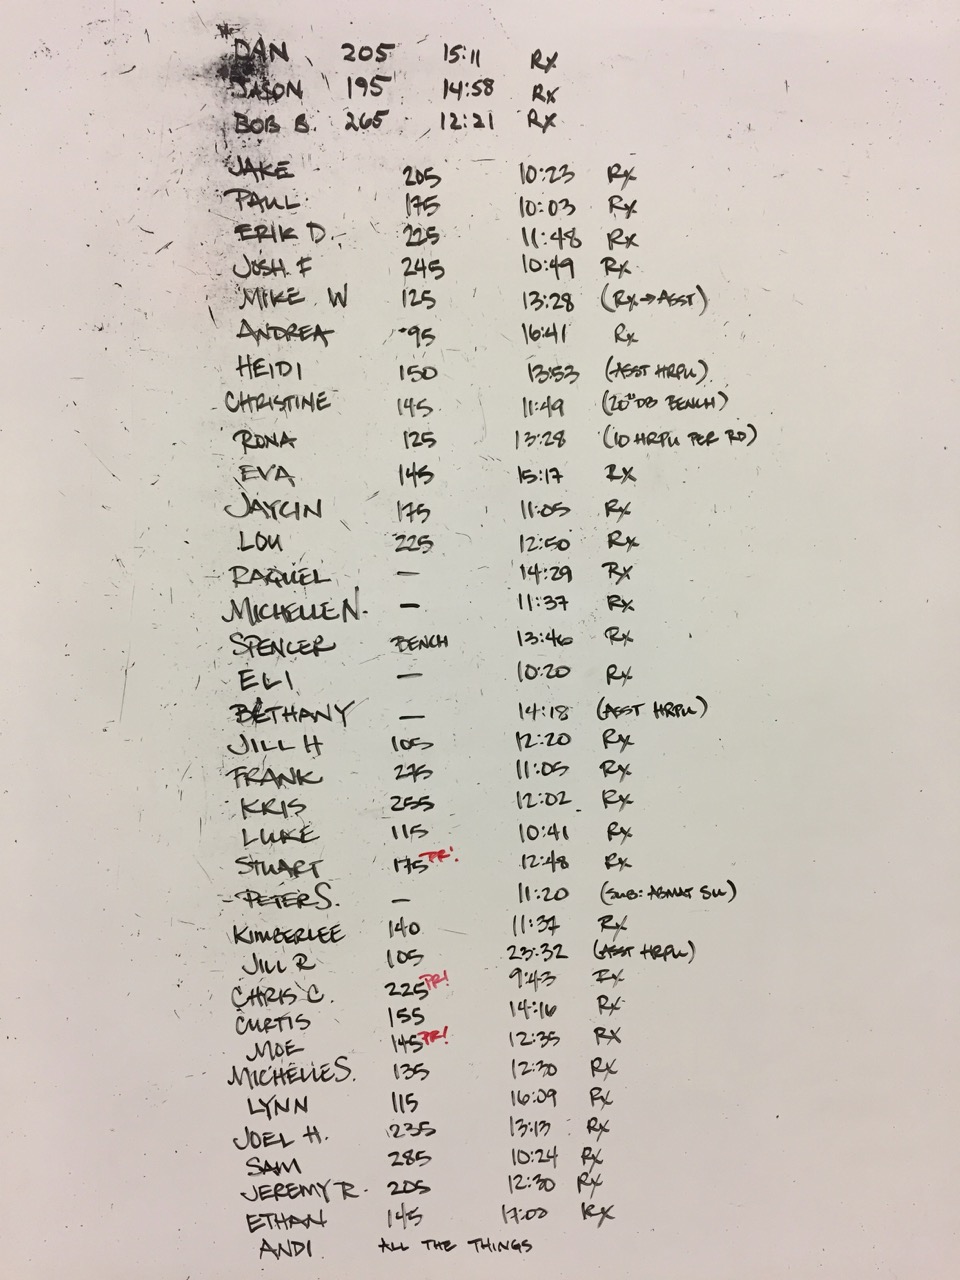 DAN 205 15:11 Rx
JASON 195 14:58 Rx
BOB B. 265 12:21 Rx
JAKE 205 10:23 Rx
PAUL 175 10:03 Rx
ERIK D. 225 11:48 Rx
JOSH F 245 10:49 Rx
MIKE W 125 13:28 (Rx→ASST)
ANDREA 95 16:41 Rx
HEIDI 150 13:53 (ASST HRPU)
CHRISTINE 145 11:49 (20" DB BENCH)
RONA 125 13:28 (10 HRPU PER RD)
EVA 145 15:17 Rx
JAYCIN 175 11:05 Rx
LOU 225 12:50 Rx
RAQUEL — 14:29 Rx
MICHELLE N. — 11:37 Rx
SPENCER BENCH 13:46 Rx
ELI — 10:20 Rx
BETHANY — 14:18 (ASST HRPU)
JILL H 105 12:20 Rx
FRANK 275 11:05 Rx
KRIS 255 12:02 Rx
LUKE 115 10:41 Rx
STUART 175 PR! 12:48 Rx
PETER S. — 11:20 (SUB: ABMAT SU)
KIMBERLEE 140 11:37 Rx
JILL R 105 23:32 (ASST HRPU)
CHRIS C. 225 PR! 9:43 Rx
CURTIS 155 14:16 Rx
MOE 145 PR! 12:35 Rx
MICHELLE S. 135 12:30 Rx
LYNN 115 16:09 Rx
JOEL H. 235 13:13 Rx
SAM 285 10:24 Rx
JEREMY R. 205 12:30 Rx
ETHAN 145 17:00 Rx
ANDI ALL THE THINGS